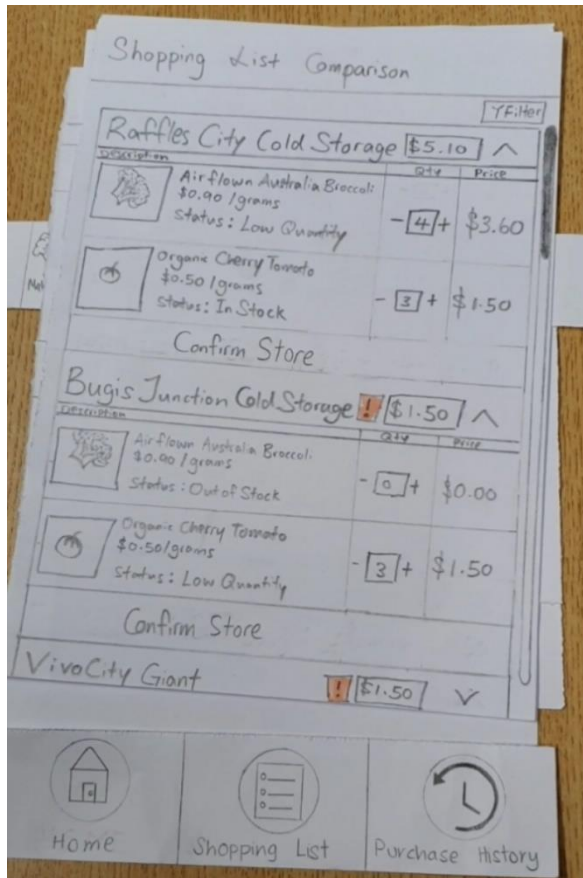 Shopping List Comparison
Filter
Raffles City Cold Storage $5.10
Description Qty Price
Airflown Australia Broccoli
$0.90 /grams
Status: Low Quantity
- 4 + $3.60
Organic Cherry Tomato
$0.50 /grams
Status: In Stock
- 3 + $1.50
Confirm Store
Bugis Junction Cold Storage ! $1.50
Description Qty Price
Airflown Australia Broccoli
$0.90 /grams
Status: Out of Stock
- 0 + $0.00
Organic Cherry Tomato
$0.50/grams
Status: Low Quantity
- 3 + $1.50
Confirm Store
VivoCity Giant ! $1.50
Home
Shopping List
Purchase History